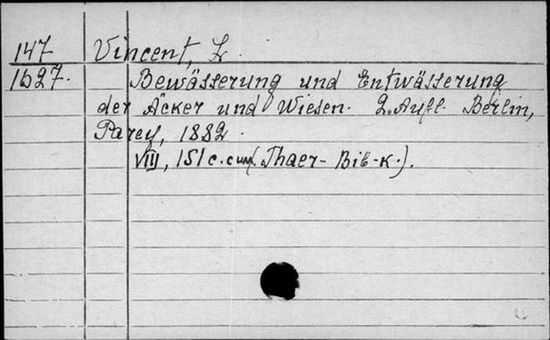 147 Vincent, L.
1627. Bewässerung und Entwässerung
der Äcker und Wiesen. 2. Aufl. Berlin,
Parey, 1882.
VIII, 151 c. cum. (Thaer-Bib-K.).